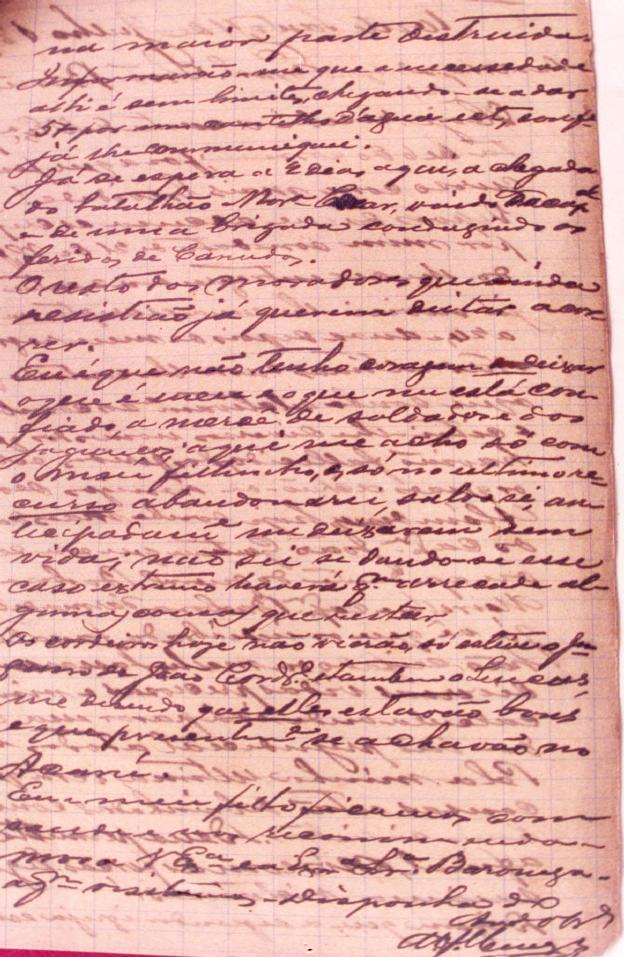 na maior parte destruida.
Informarão-me que a necessidade
alli é sem limites, chegando-se a dar
5$ por um cantilho d'agua
já lhe communiquei.
Já se espera a 2 dias, aqui, a chegada
do batalhão Mor. Cesar, vindo
e de uma brigada conduzindo os
feridos de Canudos.
O resto dos moradores que ainda
resistião já querem deitar a cor-
rer.
Eu é que não tenho coragem deixar
o que é meu e o que me está con-
fiado, a mercê de soldados e dos
jagunços, aqui me acho só com
o meu filhinho, e só no ultimo re-
curso abandonarei, salvo si, an-
ticipadamte me deixarem sem
vida; não sei se dando-se esse
caso extremo haverá qm arrecade al-
guma cousa que restar.
Os cordeiros hoje não virão, si esteve o
de João Cordro e tambem o Lucas
me dizendo que elles estavão bons
e que presentemte se achavão no
Acarú.
Eu e meu filho ficamos com
saude e nos recommenda-
mos a V Exa e a Exma Sra Baroneza
a qm visitamos. Disponha do